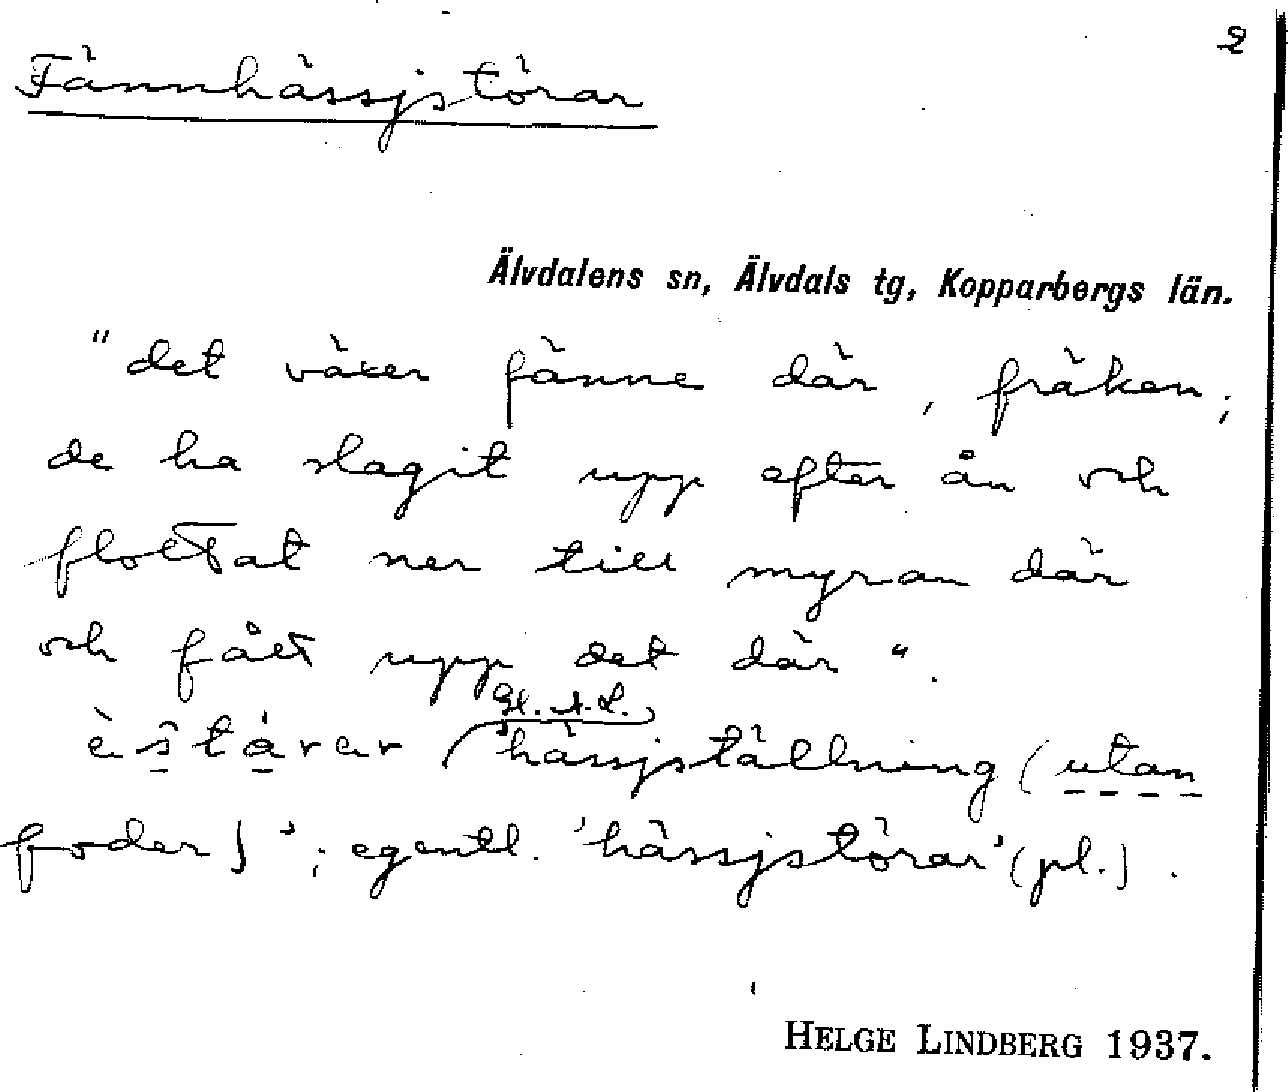 2
Fännhässjstörar
Älvdalens sn, Älvdals tg, Kopparbergs län.
"det växer fänne där, fräken;
de ha slagit upp efter ån och
flottat ner till myran där
och fått upp det där".
('hässjställning (utan
foder)'; egentl. 'hässjstörar' (pl.).
HELGE LINDBERG 1937.